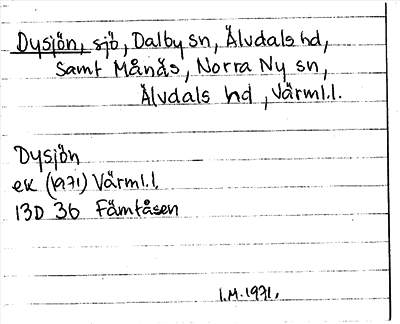 Dysjön, sjö, Dalby sn, Älvdals hd,
samt Månäs, Norra Ny sn,
Älvdals hd, Värml.l.
Dysjön
ek (1971) Värml.l.
13D 3b Fämtåsen
I.M. 1971.